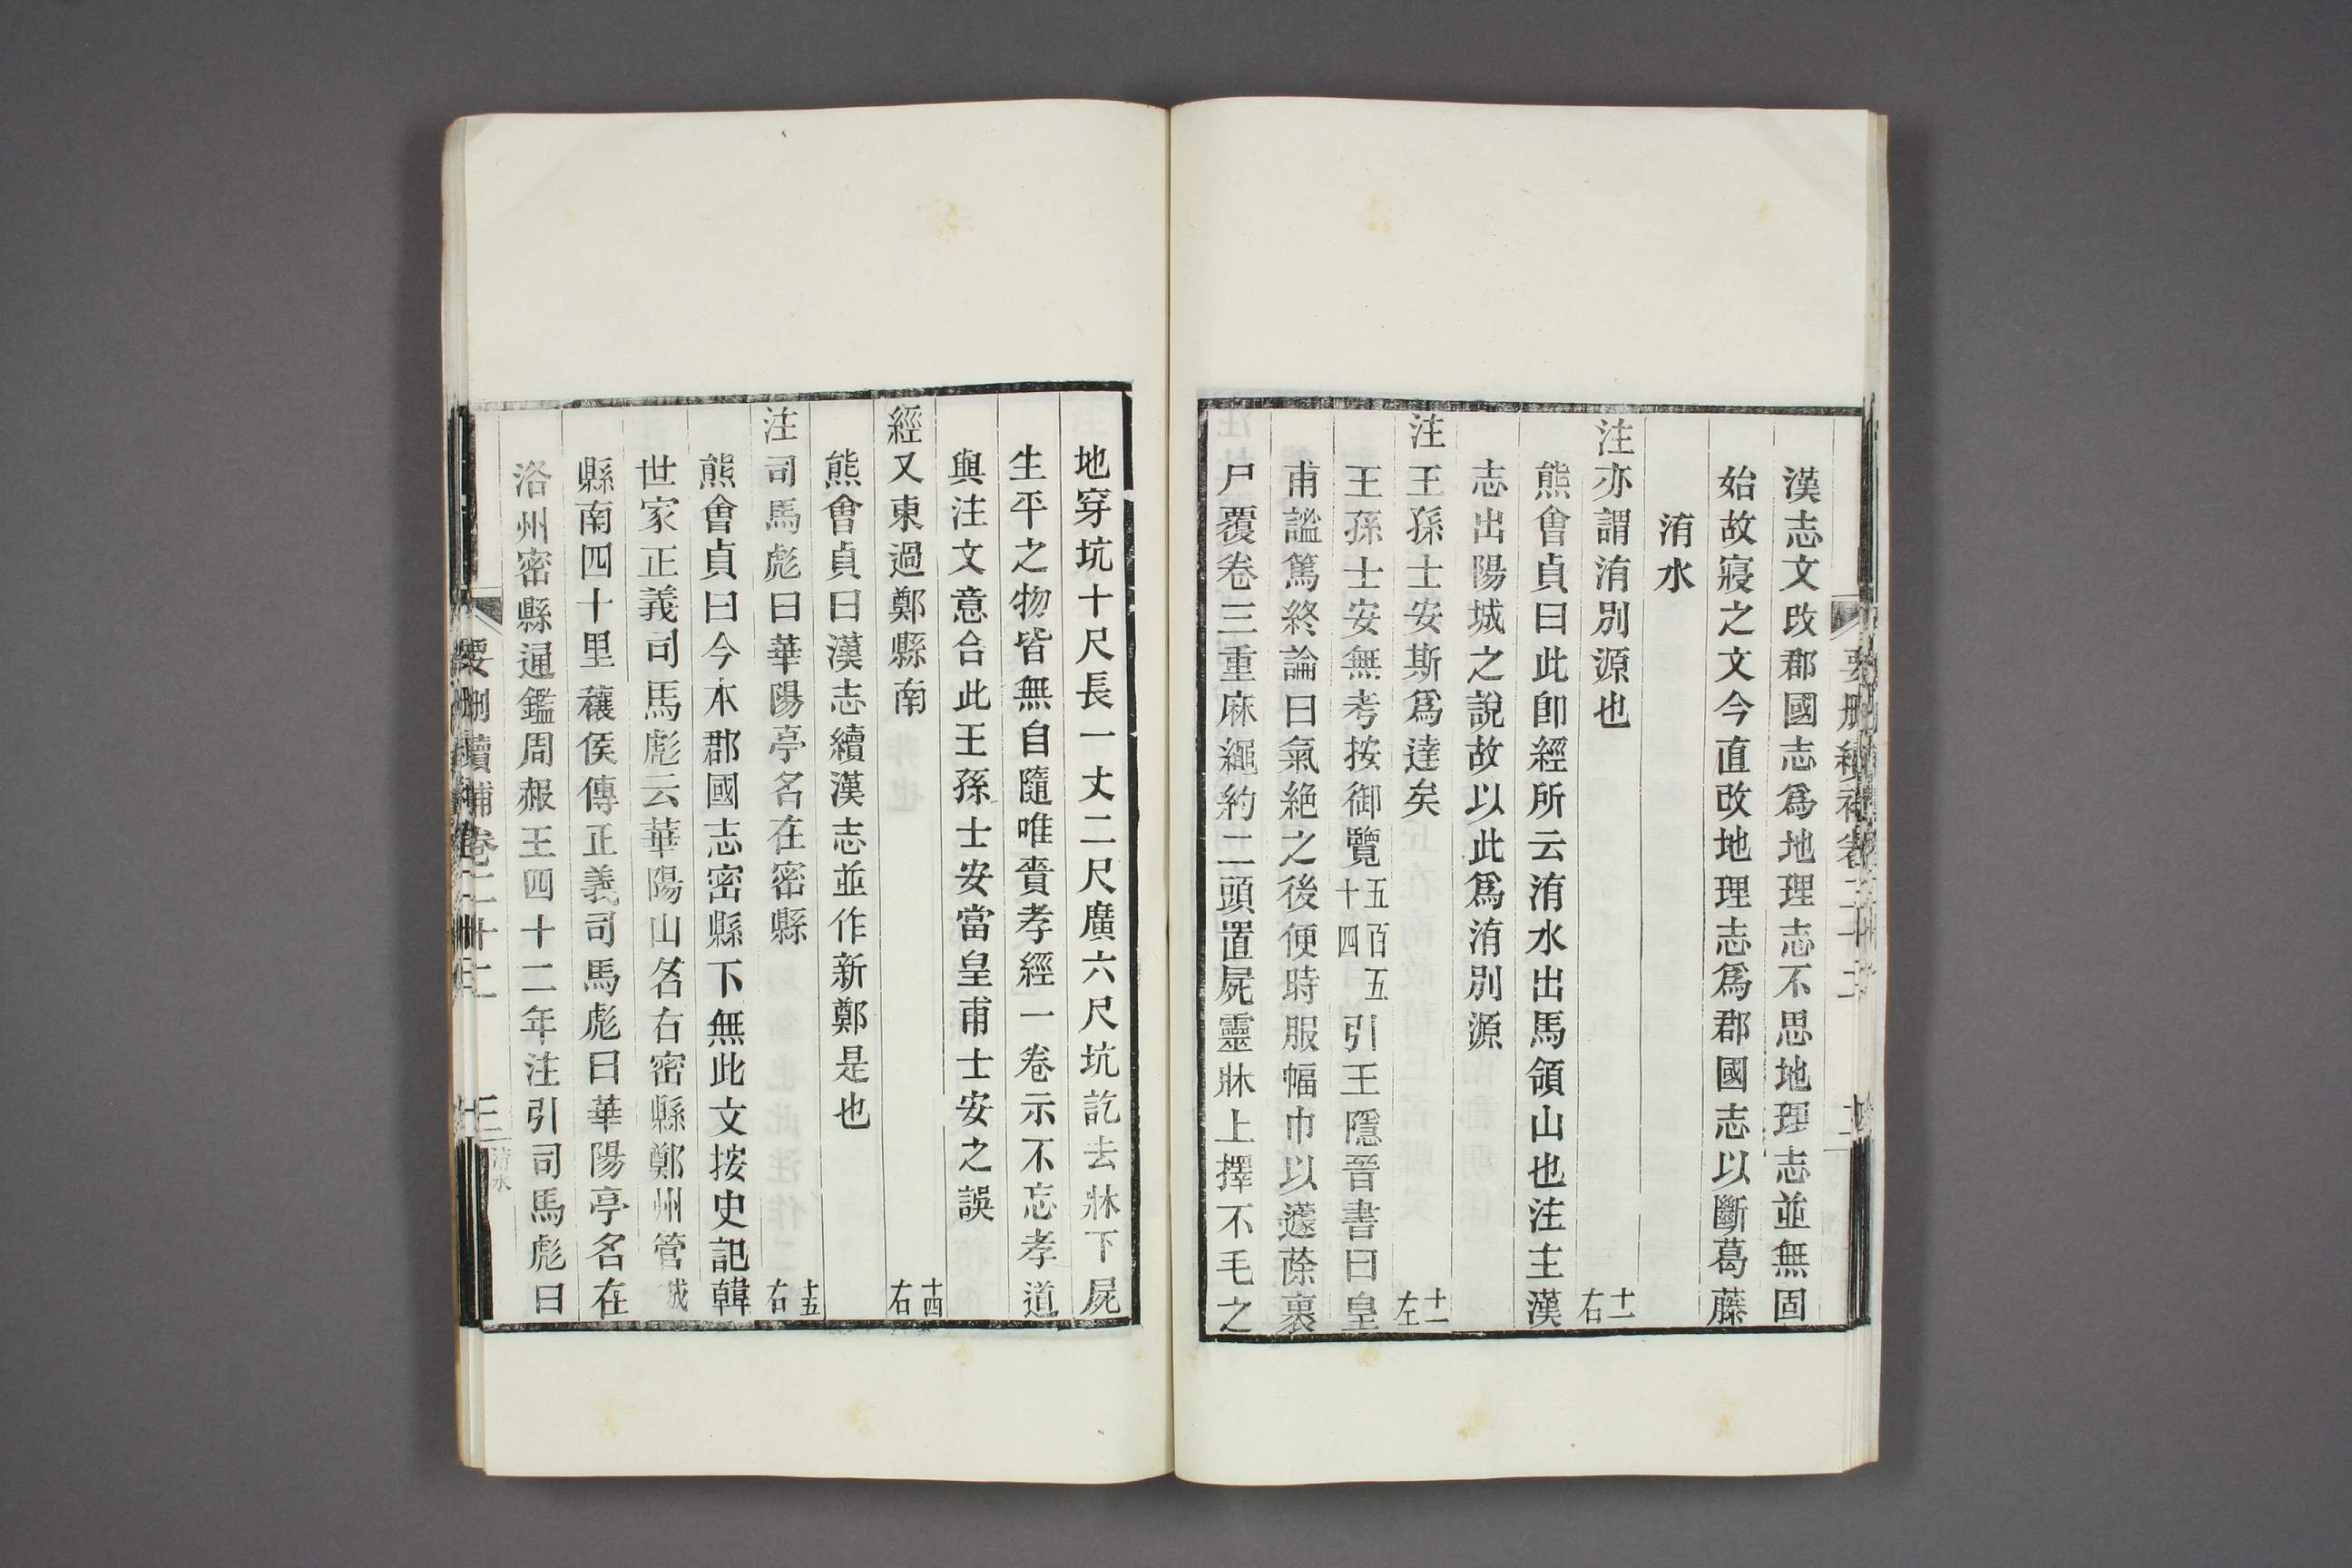 漢志文改郡國志爲地理志不思地理志並無固
始故寢之文今直改地理志爲郡國志以斷葛藤
洧水
注亦謂洧別源也 十一右
熊會貞曰此卽經所云洧水出馬領山也注主漢
志出陽城之說故以此爲洧別源
注王孫士安斯爲達矣 十一左
王孫士安無考按御覽五百五十四引王隱晉書曰皇
甫謐篤終論曰氣絕之後便時服幅巾以蘧蒢裹
尸覆卷三重麻繩約二頭置屍靈牀上擇不毛之
地穿坑十尺長一丈二尺廣六尺坑訖去牀下屍
生平之物皆無自隨唯賫孝經一卷示不忘孝道
與注文意合此王孫士安當皇甫士安之誤
經又東過鄭縣南 十四右
熊會貞曰漢志續漢志並作新鄭是也
注司馬彪曰華陽亭名在密縣 十五右
熊會貞曰今本郡國志密縣下無此文按史記韓
世家正義司馬彪云華陽山名右密縣鄭州管城
縣南四十里穰侯傳正義司馬彪曰華陽亭名在
洛州密縣通鑑周赧王四十二年注引司馬彪曰
要刪續補卷二十二 三 洧水